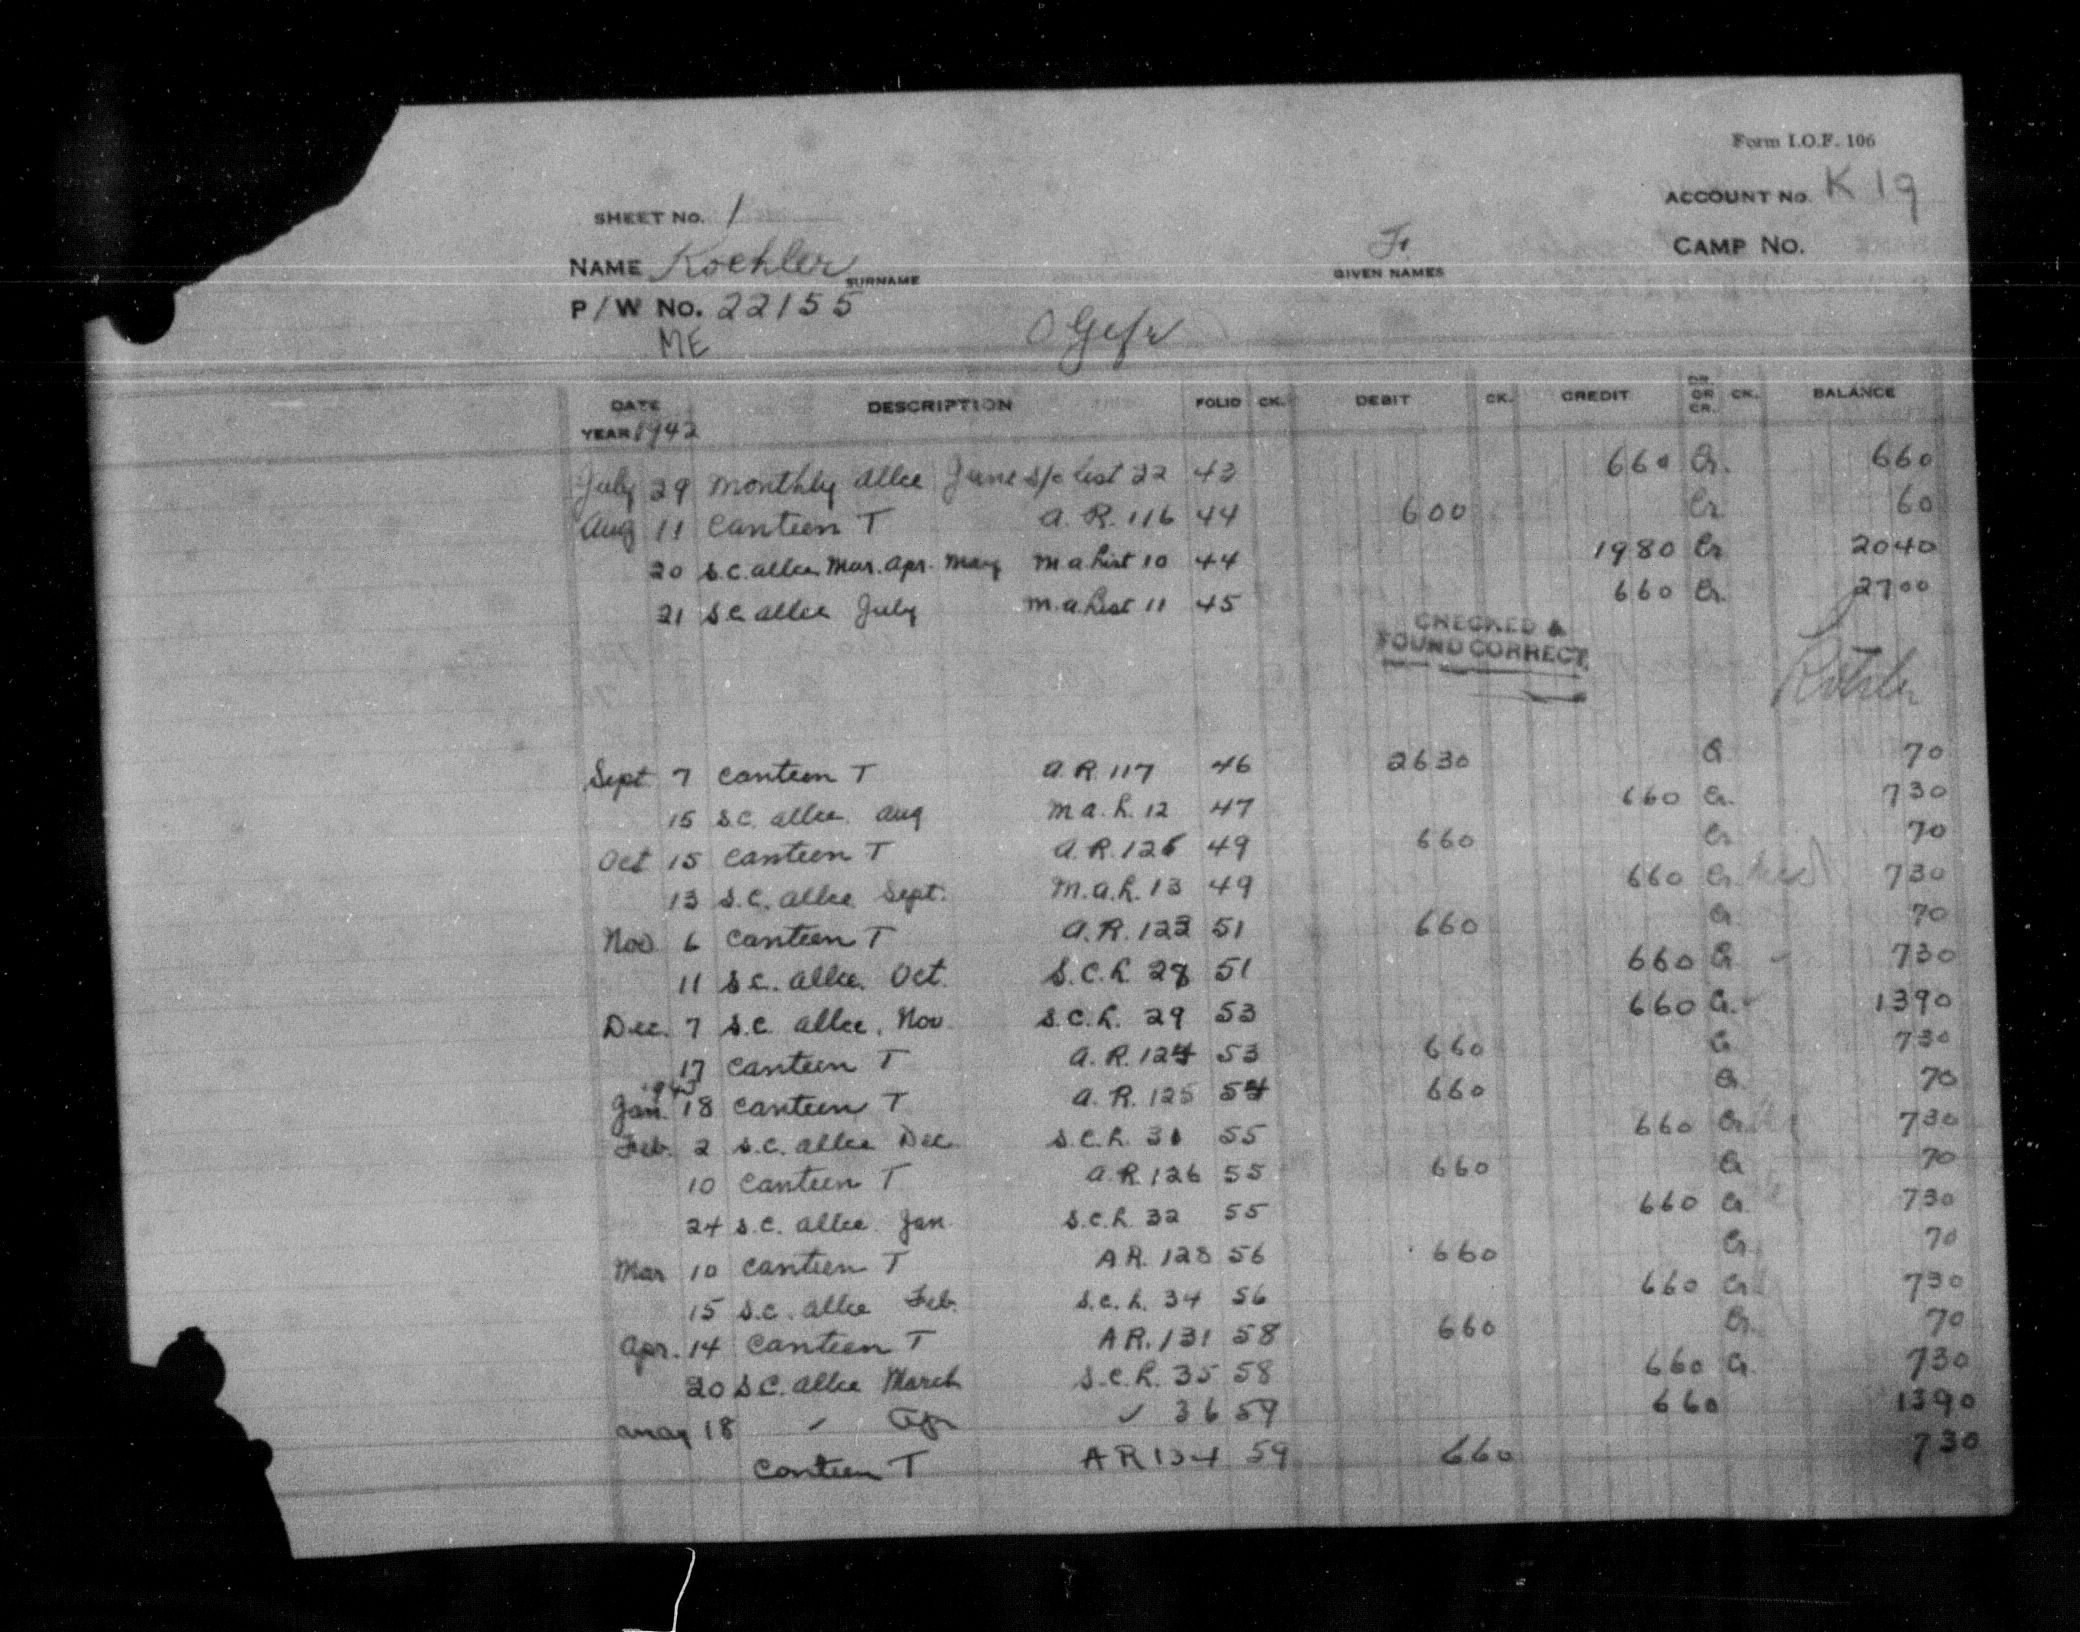 Form I.O.F. 106
SHEET No. 1
ACCOUNT No. K 19
NAME Koehler SURNAME
F. GIVEN NAMES
CAMP No.
P/W No. 22155
ME
O Gefr
DATE DESCRIPTION FOLIO CK. DEBIT CK. CREDIT DR. OR CR. CK. BALANCE
YEAR 1942
July 29 Monthly allce June s/c list 22 43 660 Cr. 660
Aug 11 Canteen T A.R. 116 44 600 Cr 60
20 S.C. allce Mar. Apr. May M A List 10 44 1980 Cr 2040
21 S.C allce July M.A List 11 45 660 Cr. 2700
CHECKED &
FOUND CORRECT
Köhler
Sept 7 Canteen T A.R. 117 46 2630 Cr 70
15 S.C. allce. Aug M A. L. 12 47 660 Cr. 730
Oct 15 Canteen T A.R. 49 660 Cr 70
13 S.C. allce Sept. M.A.L. 13 49 660 Cr 730
Nov 6 Canteen T A.R. 51 660 Cr 70
11 S.C. allce. Oct. S.C.L. 28 51 660 Cr 730
Dec. 7 S.C. allce. Nov. S.C.L. 29 53 660 Cr. 1390
17 Canteen T A.R. 124 53 660 Cr 730
1943
Jan. 18 Canteen T A.R. 125 54 660 Cr 70
Feb. 2 S.C. allce Dec. S.C.L. 55 660 Cr 730
10 Canteen T A.R. 126 55 660 Cr 70
24 S.C. allce. Jan. S.C.L. 32 55 660 Cr 730
Mar 10 Canteen T A.R. 128 56 660 Cr. 70
15 S.C. allce Feb. S.C.L. 34 56 660 Cr 730
Apr. 14 Canteen T A.R. 131 58 660 Cr. 70
20 S.C. allce March S.C.L. 35 58 660 Cr. 730
May 18 Apr ✓ 36 59 660 1390
Canteen T A R 134 59 660 730